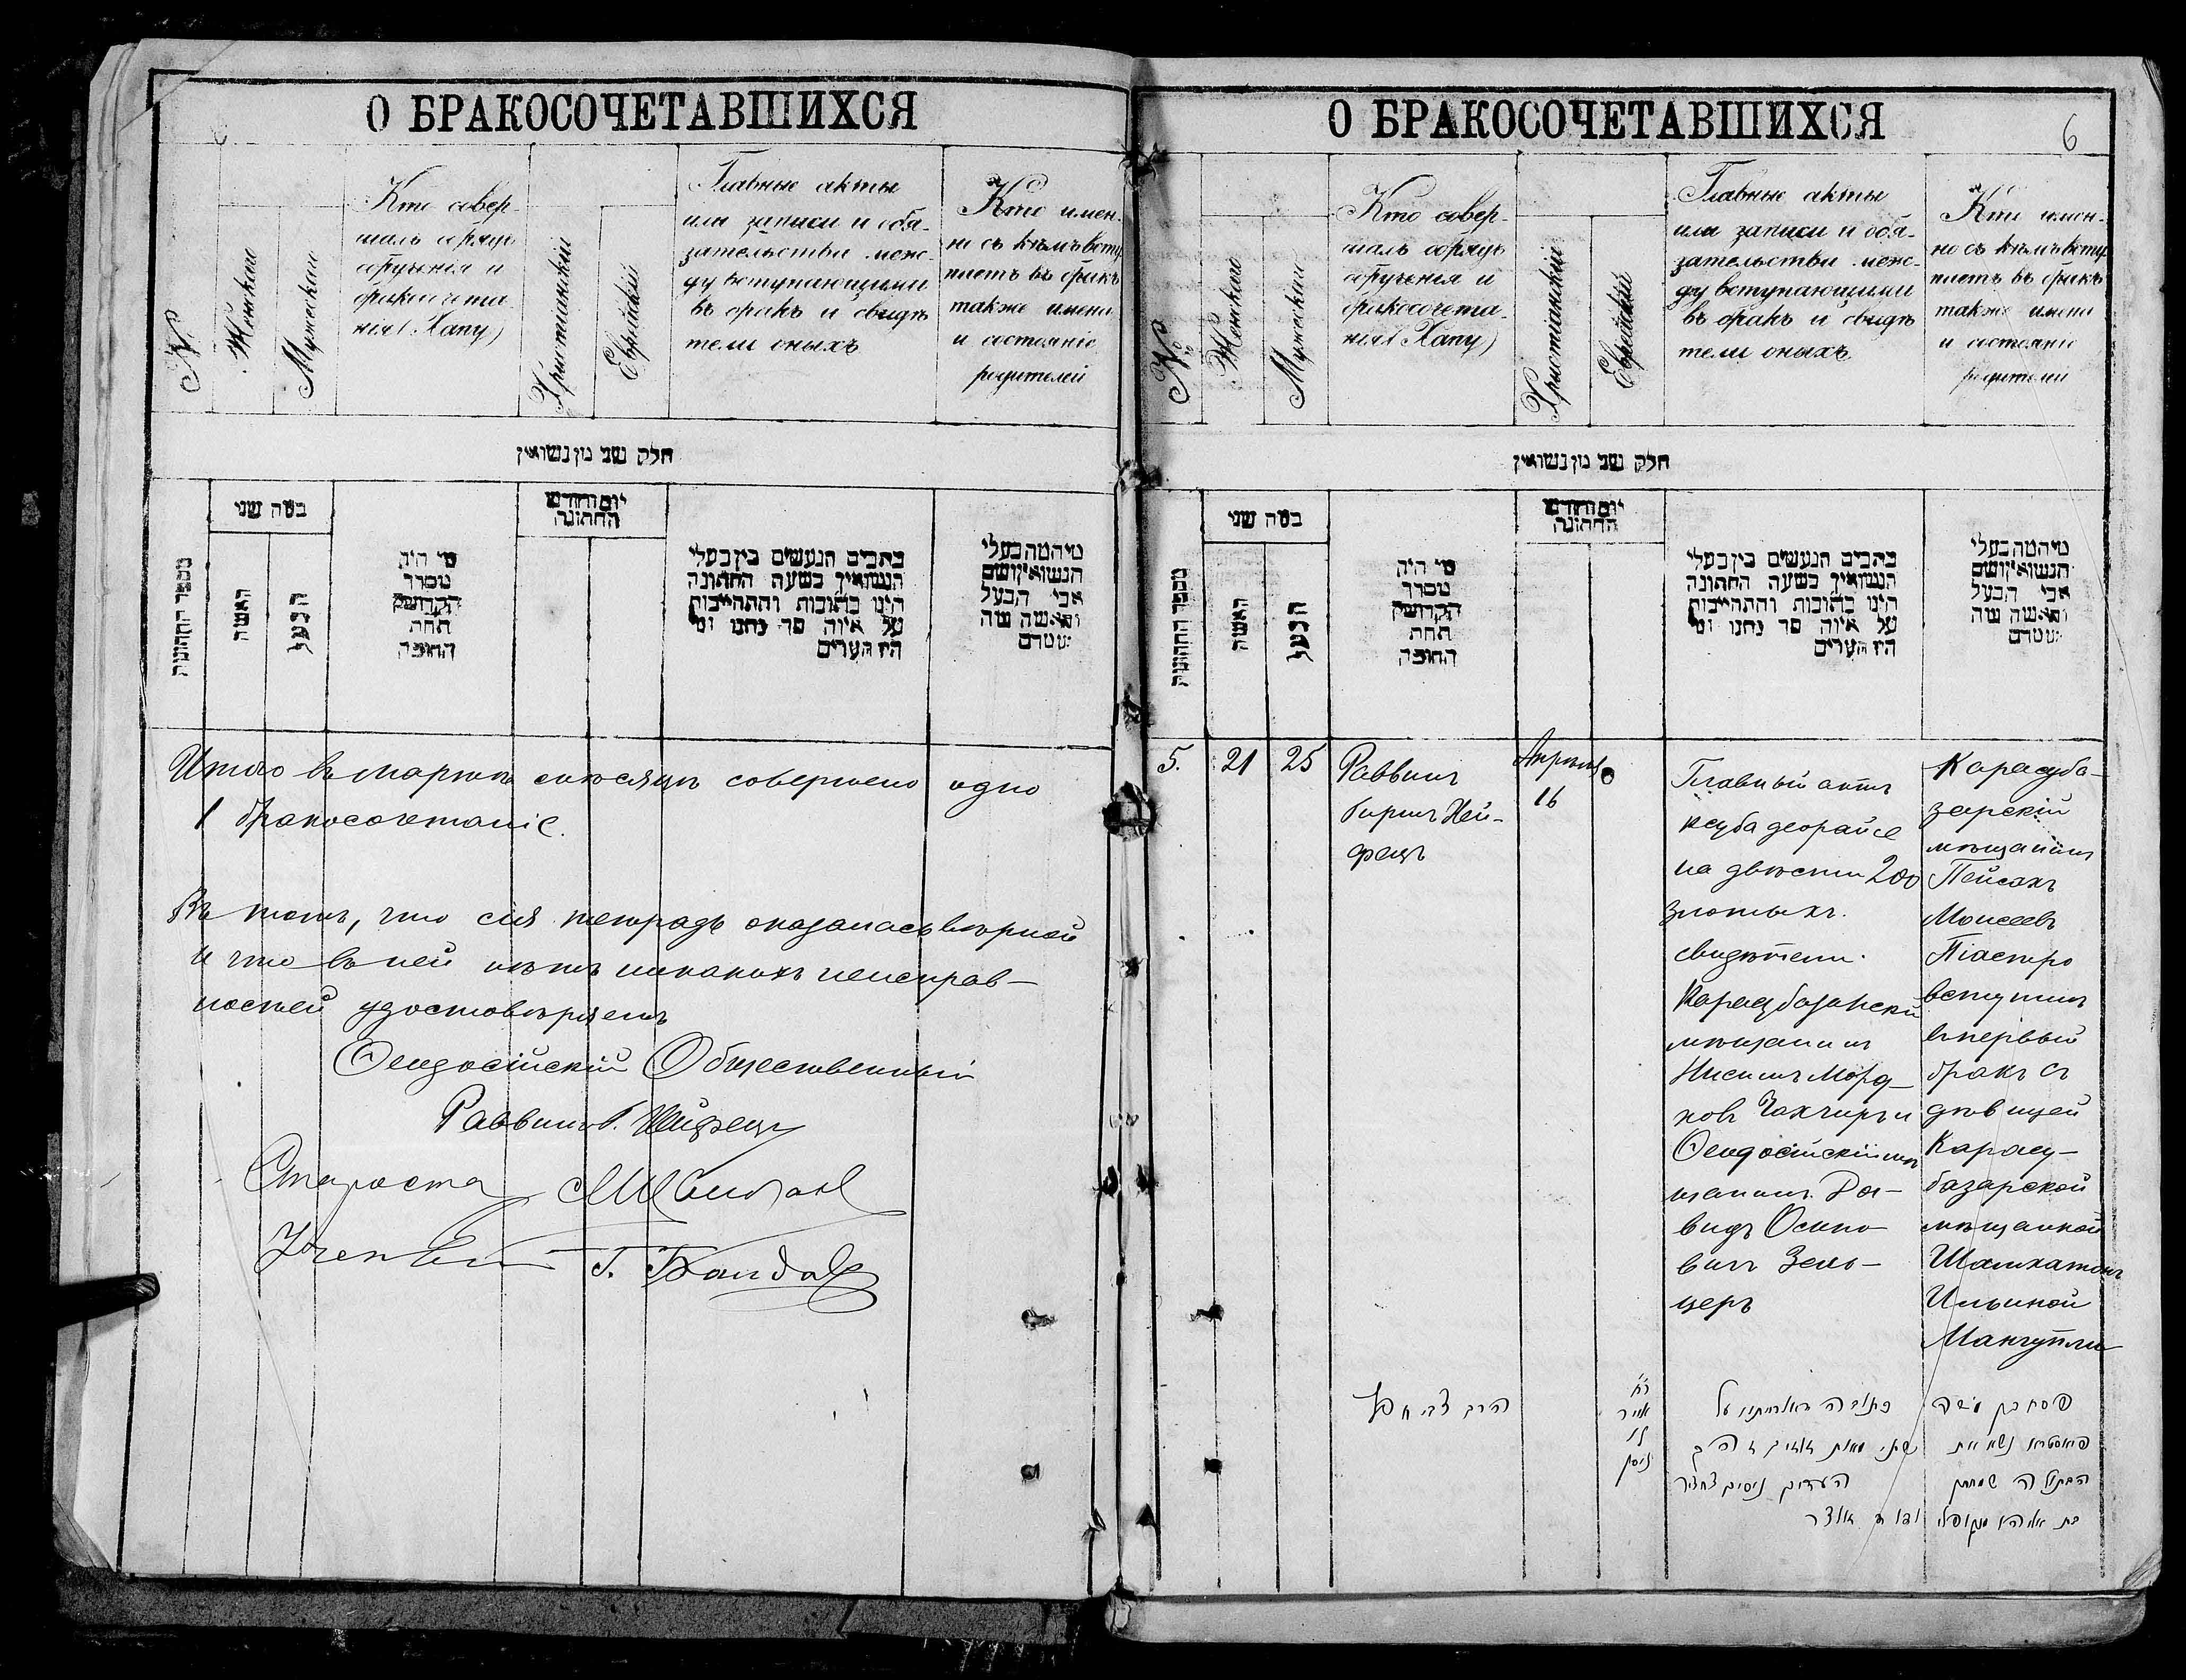 О БРАКОСОЧЕТАВШИХСЯ
№
Женскаго
Мужескаго
Кто совер-
шалъ обрядъ
обрученія и
бракосочета
нія (Хапу)
Христіанскій
Еврейскій
Главные акты
или записи и обя-
зательства меж-
ду вступающими
въ бракъ и свидѣ
тели оныхъ
Кто имен-
но съ кѣмъ всту
паетъ въ бракъ
также имена
и состояніе
родителей
חלק שני מן נשואין
מספר החתונות
כמה שני
האשה
הבעל
מי היה
מסדר
הקדושין
תחת
החופה
יום וחודש
החתונה
כתבים הנעשים בין בעלי
הנשואין בשעה החתונה
היינו כתובות והתחייבות
על איזה סך נתנו ומי
היו העדים
מי המה בעלי
הנשואין ושם
אבי הבעל
והאשה ומה
מעמדם
Итого въ мартѣ мѣсяцѣ совершено одно
1 бракосочетаніе.
Въ томъ, что сія тетрадь оказалась вѣрной
и что въ ней нѣтъ никакихъ неисправ-
ностей удостовѣряетъ
Ѳеодосійскій Общественный
Раввинъ Б. Хейфецъ
Староста
Г.
О БРАКОСОЧЕТАВШИХСЯ
6
№
Женскаго
Мужескаго
Кто совер-
шалъ обрядъ
обрученія и
бракосочета
нія (Хапу)
Христіанскій
Еврейскій
Главные акты
или записи и обя-
зательства меж-
ду вступающими
въ бракъ и свидѣ
тели оныхъ
Кто имен-
но съ кѣмъ всту
паетъ въ бракъ
также имена
и состояніе
родителей
חלק שני מן נשואין
מספר החתונות
כמה שני
האשה
הבעל
מי היה
מסדר
הקדושין
תחת
החופה
יום וחודש
החתונה
כתבים הנעשים בין בעלי
הנשואין בשעה החתונה
היינו כתובות והתחייבות
על איזה סך נתנו ומי
היו העדים
מי המה בעלי
הנשואין ושם
אבי הבעל
והאשה ומה
מעמדם
5.
21
25
Раввинъ
Биринъ Хей-
фецъ
Апрѣля
16
Главный актъ
ксуба деорайсе
на двѣсти 200
злотыхъ.
свидѣтели:
Карасубазарскій
мѣщанинъ
Нисимъ Морд-
ховъ Чахчиръ и
Ѳеодосійскій мѣ
щанинъ Да-
видъ Осипо
вичъ Зель-
церъ
Карасуба-
зарскій
мѣщанинъ
Пейсахъ
Моисеевъ
Піастро
вступилъ
въ первый
бракъ съ
дѣвицей
Карасу-
базарской
мѣщанкой
Шамхатонъ
Ильиной
Мангупли
הרב צבי חפץ
אייר
ניסן
כתובה דאורייתא על
שתי מאות זהובים
העדים ניסים
פסח בן משה
פיאסטרא נשא את
הבתולה
בת אליהו מנגופלי